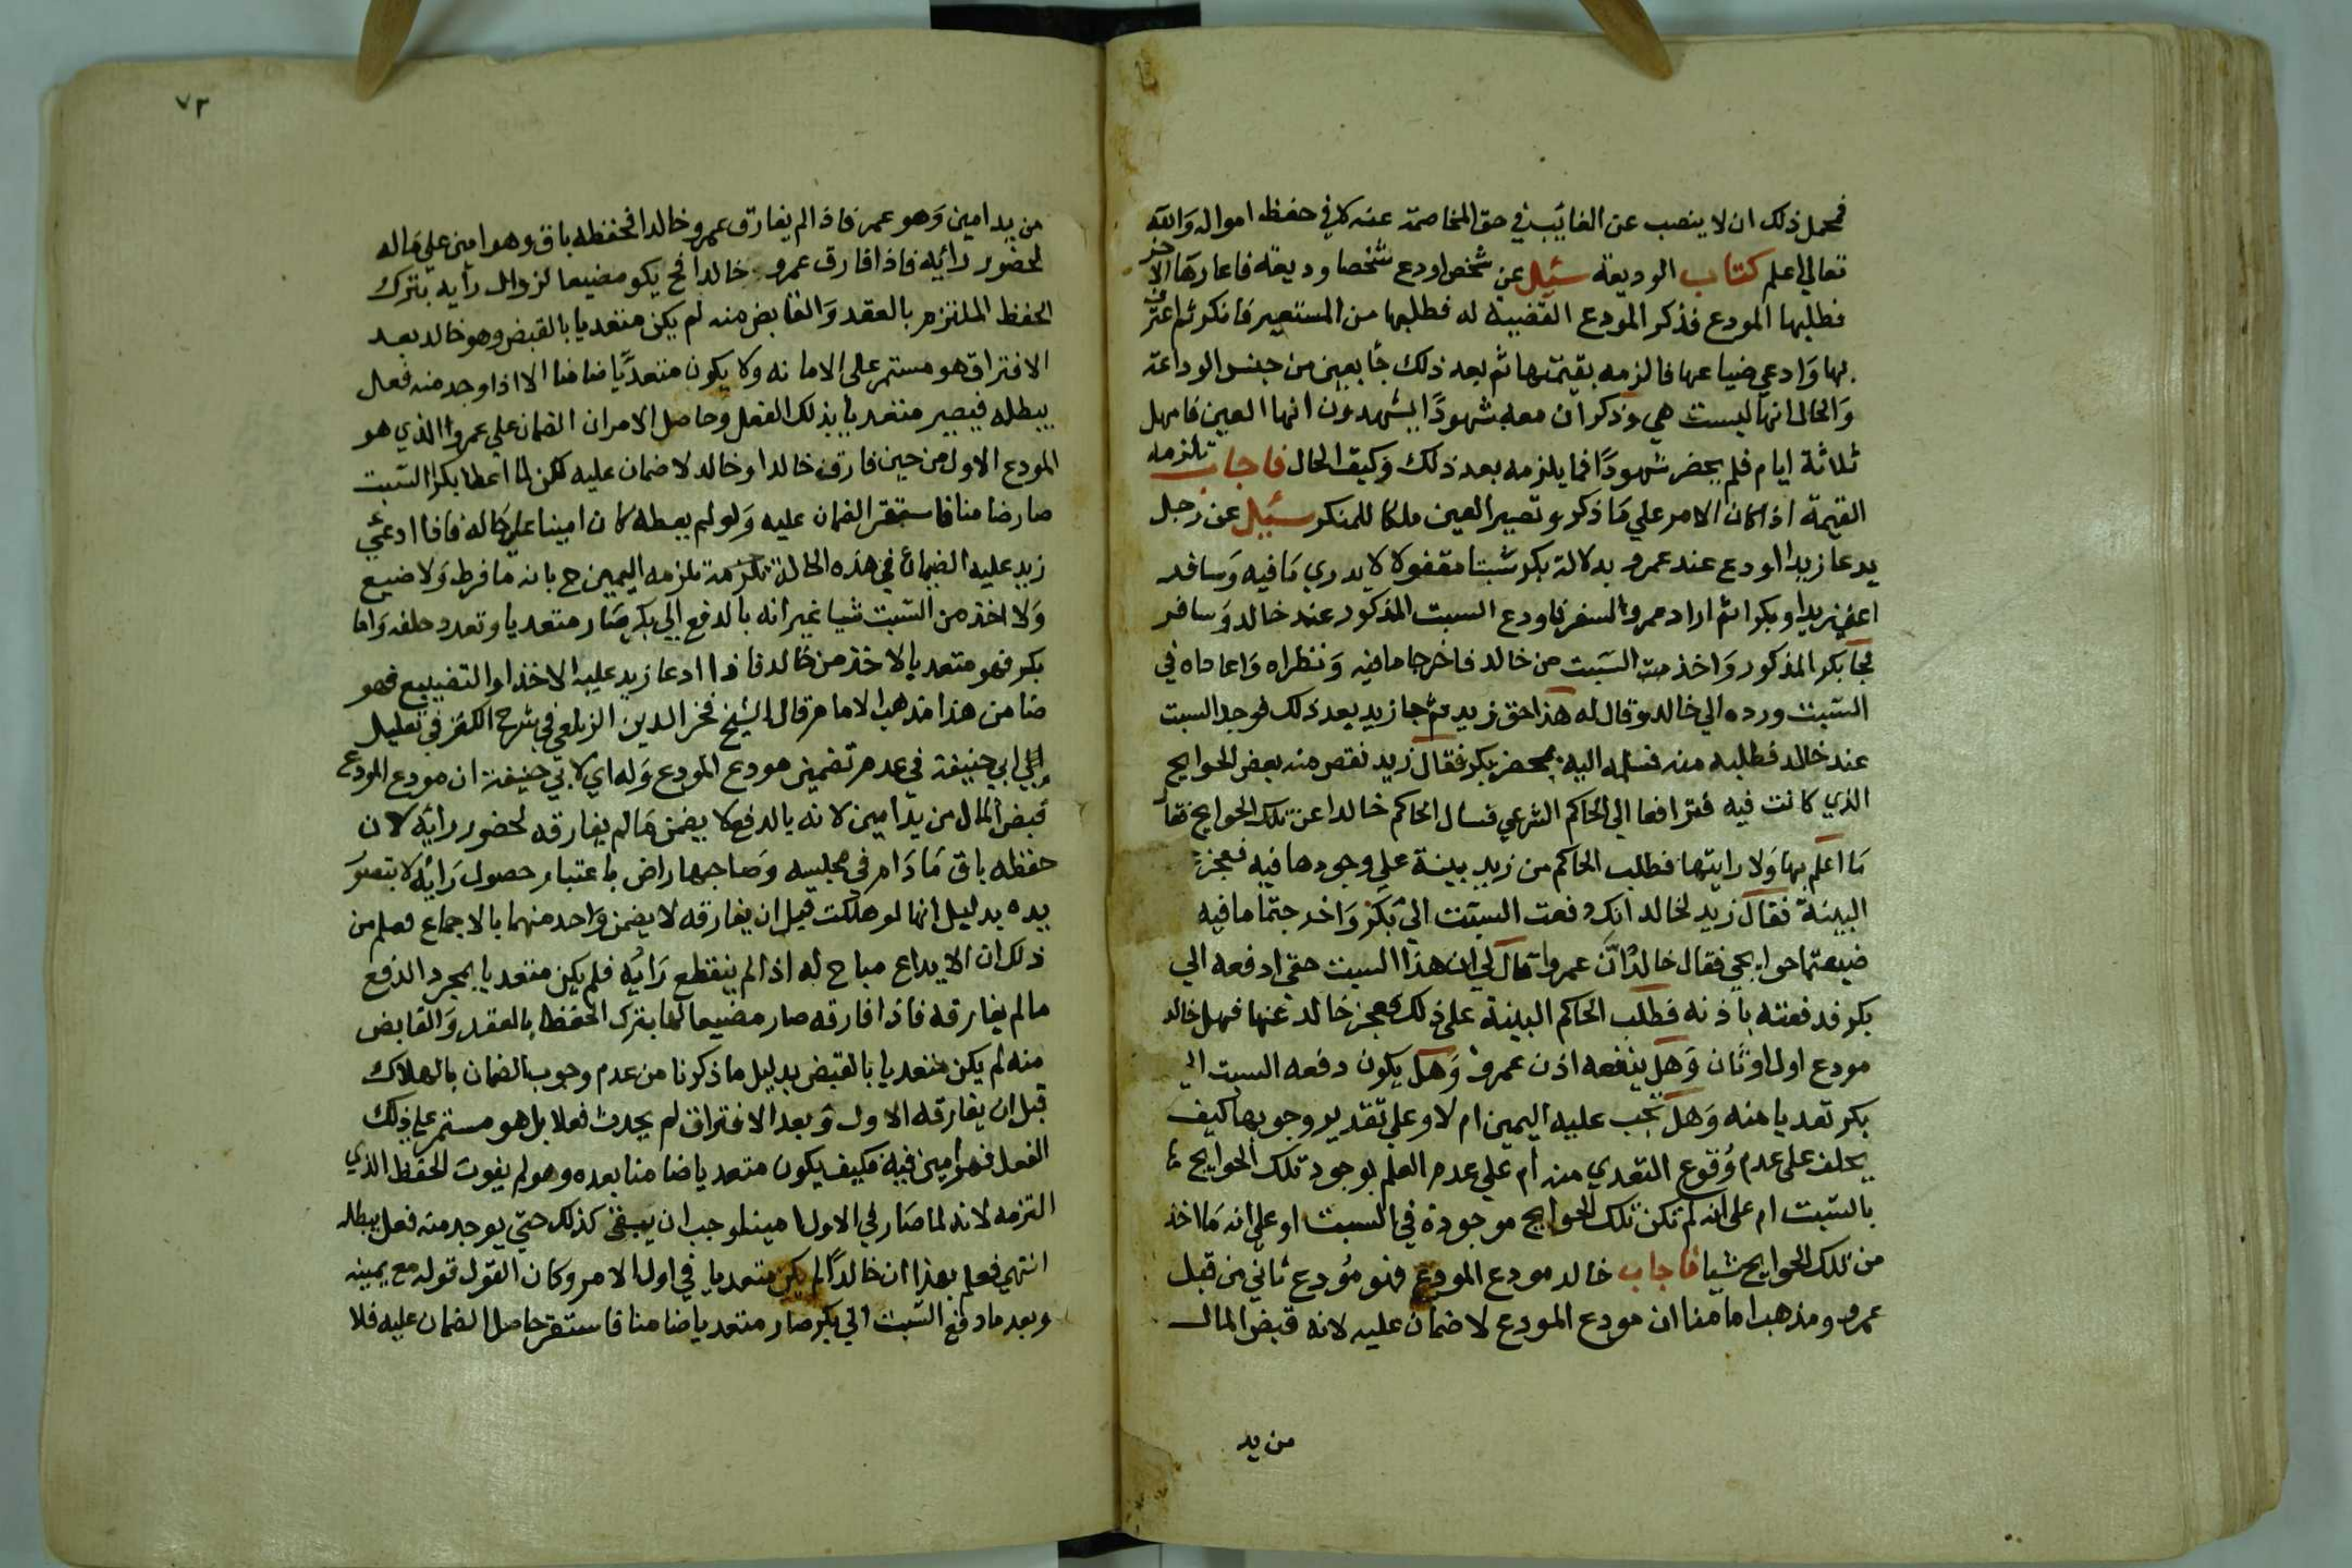 فمحمل ذلك ان لا ينصب عن الغائب في حق المخاصمة عنه لا في حفظ امواله والله
تعالى اعلم كتاب الوديعة سئيل عن شخص اودع شخصا وديعة فاعارها الاخر
فطلبها المودع فذكر المودع القضية له فطلبها من المستعير فانكر ثم اعترف
بها وادعي ضياعها فالزمه بقيمتها ثم بعد ذلك جا بعين من جنس الوداعة
والحال انها ليست هي وذكر ان معه شهودًا يشهدون انها العين فامهل
ثلاثة ايام فلم يحضر شهودًا فما يلزمه بعد ذلك وكيف الحال فاجاب تلزمه
القيمة اذا كان الامر علي ما ذكر وتصير العين ملكا للمنكر سئيل عن رجل
يدعا زيد اودع عند عمرو بدلالة بكر سبتا مقفولا لا يدري ما فيه وسافر
اعني زيدا وبكرا ثم اراد عمرو السفر فاودع السبت المذكور عند خالد وسافر
فجا بكر المذكور واخذ السبت من خالد فاخرجا ما فيه ونظراه واعاداه في
السبت ورده الي خالد وقال له هذا حق زيد ثم جا زيد بعد ذلك فوجد السبت
عند خالد فطلبه منه فسلمه اليه بمحضر بكر فقال زيد نقص منه بعض الحوايج
الذي كانت فيه فترافعا الي الحاكم الشرعي فسال الحاكم خالدا عن تلك الحوايج فقا
ما اعلم بها ولا رايتها فطلب الحاكم من زيد بينة علي وجودها فيه فعجز
البينة فقال زيد لخالد انك دفعت السبت الي بكر واخرجتما ما فيه
ضيعتما حوايجي فقال خالد ان عمروا قال لي ان هذا السبت حقي ادفعه الي
بكر فدفعته باذنه فطلب الحاكم البينة على ذلك فعجز خالد عنها فهل خالد
مودع اول او ثان وهل ينفعه اذن عمرو وهل يكون دفعه السبت الي
بكر تعديا منه وهل يجب عليه اليمين ام لا وعلي تقدير وجوبها كيف
يحلف على عدم وقوع التعدي منه ام علي عدم العلم بوجود تلك الحوايج
بالسبت ام على انه لم تكن تلك الحوايج موجودة في السبت او على انه ما اخذ
من تلك الحوايج شيا فاجاب خالد مودع المودع فهو مودع ثاني من قبل
عمرو ومذهب امامنا ان مودع المودع لا ضمان عليه لانه قبض المال
من يد
٧٢
من يد امين وهو عمرو فاذا لم يفارق عمرو خالدا فحفظه باق وهو امين علي ماله
لحضور رائيه فاذا فارق عمرو خالدا فح يكو مضيعا لزوال رايه بترك
الحفظ الملتزم بالعقد والقابض منه لم يكن متعديا بالقبض وهو خالد بعد
الافتراق هو مستمر على الامانه ولا يكون متعديًا ضامنا الا اذا وجد منه فعل
يبطله فيصير متعديا بذلك الفعل وحاصل الامر ان الضمان علي عمروا الذي هو
المودع الاول من حين فارق خالدا وخالد لا ضمان عليه لكن لما اعطا بكرا السبت
صار ضامنا فاستقر الضمان عليه ولو لم يعطه كان امينا على حاله فاذا ادعي
زيد عليه الضمان في هذه الحالة تلزمه اليمين ح بانه ما فرط ولا ضيع
ولا اخذ من السبت شيا غير انه بالدفع الي بكر صار متعديا وتعدد حلفه واما
بكر فهو متعد بالاخذ من خالد فاذا ادعا زيد عليه الاخذ او التضييع فهو
ضامن هذا مذهب الامام قال الشيخ فخر الدين الزيلعي في شرح الكنز في تعليل
ابي حنيفة في عدم تضمين مودع المودع وله اي لابي حنيفة ان مودع المودع
قبض المال من يد امين لانه بالدفع لا يضمن ما لم يفارقه لحضور رايه لان
حفظه باق ما دام في مجلسه وصاحبها راض باعتبار حصول رايه لا بتصور
يده بدليل انها لو هلكت قبل ان يفارقه لا يضمن واحد منهما بالاجماع فعلم من
ذلك ان الايداع مباح له اذا لم ينقطع رايه فلم يكن متعديا بمجرد الدفع
ما لم يفارقه فاذا فارقه صار مضيعا لها بترك الحفظ بالعقد والقابض
منه لم يكن متعديا بالقبض بدليل ما ذكرنا من عدم وجوب الضمان بالهلاك
قبل ان يفارقه الاول وبعد الافتراق لم يحدث فعلا بل هو مستمر علي ذلك
الفعل فهو امين فيه فكيف يكون متعديا ضامنا بعده وهو لم يفوت الحفظ الذي
التزمه لانه لما صار في الاول امينا وجب ان يبقى كذلك حتي يوجد منه فعل يبطله
انتهي فعلم بهذا ان خالدًا لم يكن متعديا في اول الامر وكان القول قوله مع يمينه
وبعد ما دفع السبت الي بكر صار متعديا ضامنا فاستقر حاصل الضمان عليه فلا